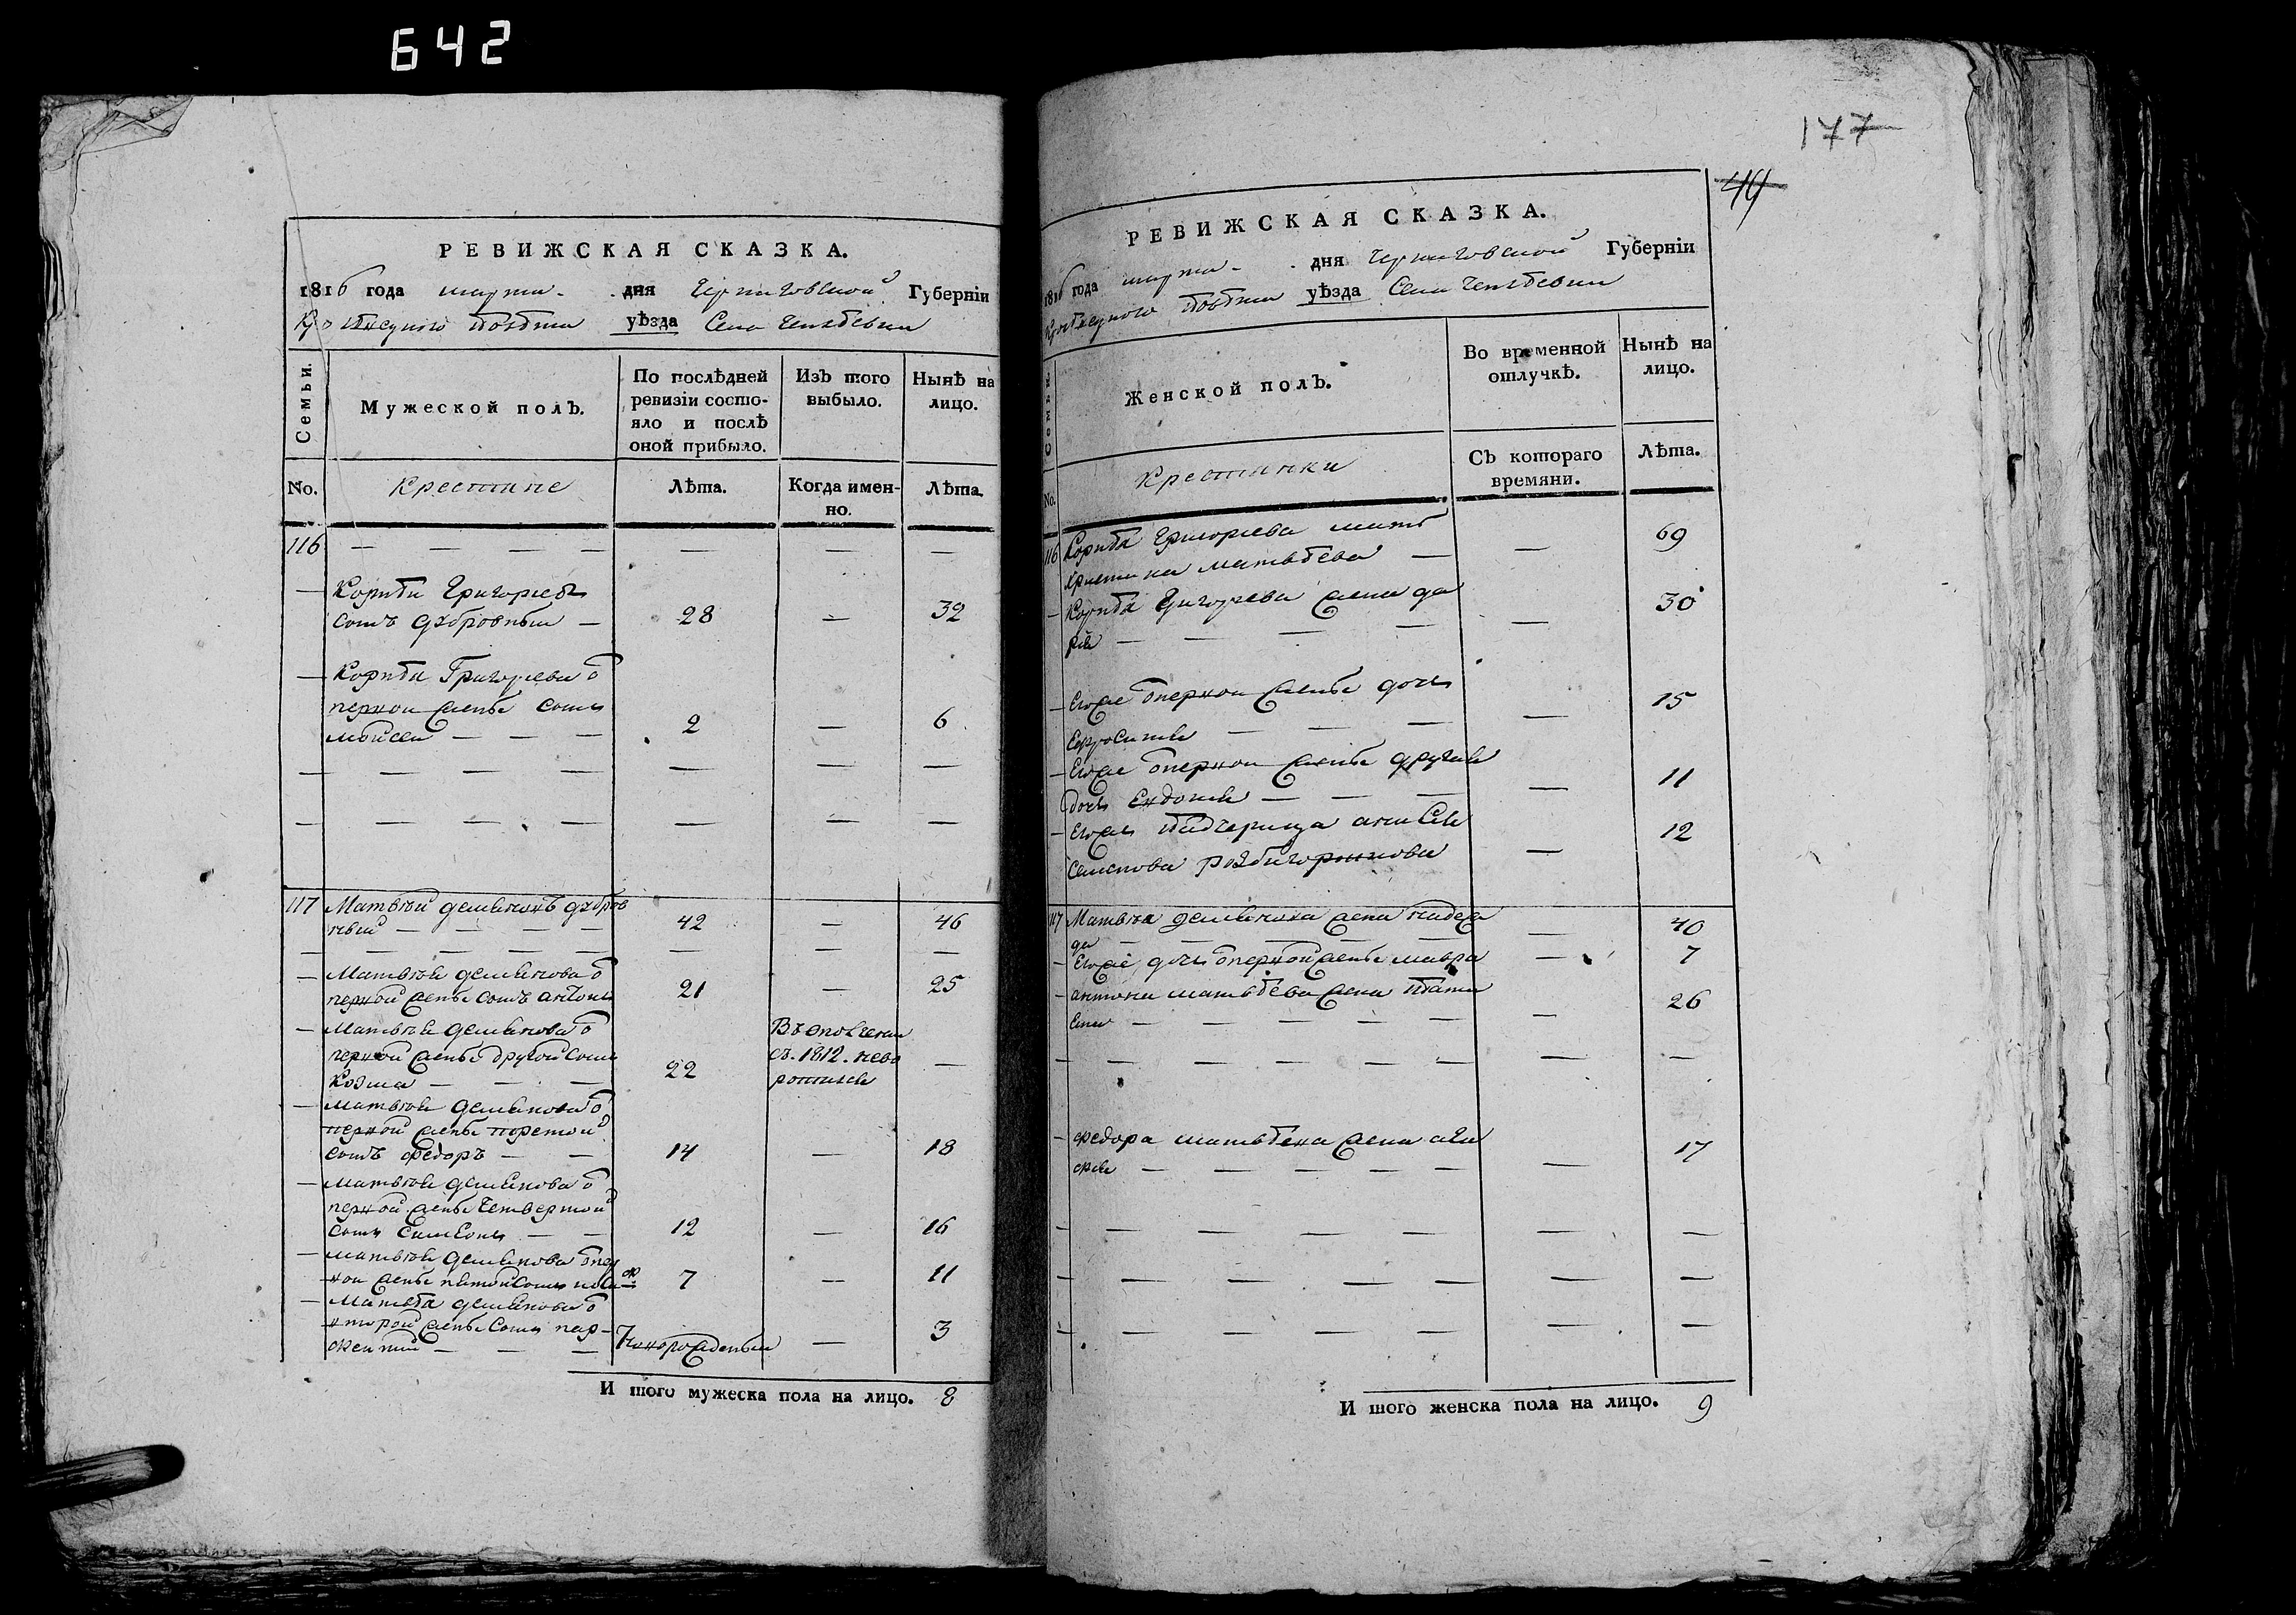 642
РЕВИЖСКАЯ СКАЗКА.
1816 года марта - дня Черниговской Губерніи
уѣзда Села
Семьи.
Мужеской полъ.
По послѣдней ревизіи состояло и послѣ оной прибыло.
Изъ того выбыло.
Нынѣ на лицо.
No.
Крестяне
Лѣта.
Когда именно.
Лѣта.
116 — — — — — — —
— Григорьевъ
сынъ — 28 — 32
— Григорьева о
первой жены сынъ
Мойсей — — — 2 — 6
— — — — — — —
— — — — — — —
117 Матвѣй Демяновъ
— — — — 42 — 46
— — — — — — —
— Матвѣя Демянова о
первой жены сынъ Антонъ 21 — 25
— Матвѣя Демянова о
первой жены другой сынъ
Козма — — — 22 Въ ополчении съ 1812. неворотился —
— Матвѣя Демянова о
первой жены третой
сынъ Федоръ — — 14 — 18
— Матвѣя Демянова о
первой жены четвертой
сынъ Симеонъ — — 12 — 16
— Матвѣя Демянова о пер
вой жены пятой сынъ 7 — 11
— Матвѣя Демянова о
второй жены сынъ Пар-
фентий — — — новорожденый — 3
И того мужеска пола на лицо. 8
177
49
РЕВИЖСКАЯ СКАЗКА.
1816 года марта - дня Черниговской Губерніи
уѣзда Села
Семьи.
Женской полъ.
Во временной отлучкѣ.
Нынѣ на лицо.
No.
Крестянки
Съ котораго времяни.
Лѣта.
116 Григорьева мать
Христина Матвѣева — — 69
— Григорьева жена Да
ря — — — — — 30
— Егоже о первой жены дочь
Ефросиня — — — — 15
— Егоже о первой жены другая
дочь Евдокия — — — — 11
— Егожъ падчерица
— 12
117 Матвѣя Демянова жена Надеж
да — — — — — 40
— Егоже дочь о первой жены Мавра — 7
— Антона Матвѣева жена Тати
яна — — — — — — 26
— — — — — — — —
— Федора Матвѣева жена Ага
фия — — — — — — 17
— — — — — — —
— — — — — — —
— — — — — — —
И того женска пола на лицо. 9